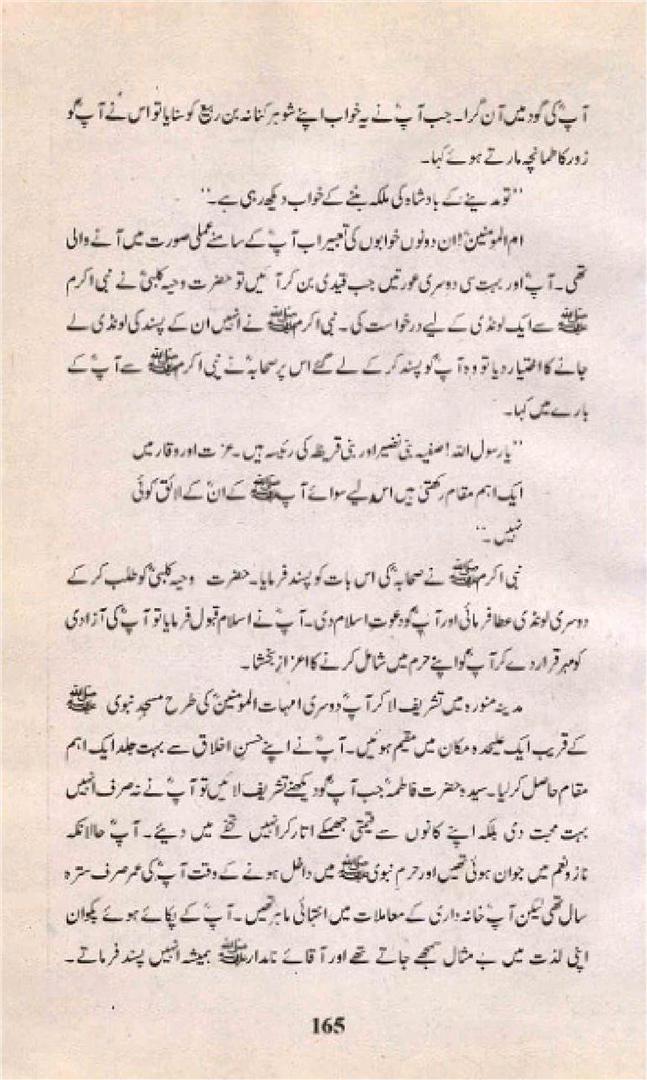 آپؓ کی گود میں آن گرا۔ جب آپؓ نے یہ خواب اپنے شوہر کنانہ بن ربیع کو سنایا تو اس نے آپؓ کو
زور کا طمانچہ مارتے ہوئے کہا۔
’’تو مدینے کے بادشاہ کی ملکہ بننے کے خواب دیکھ رہی ہے۔‘‘
ام المؤمنینؓ! ان دونوں خوابوں کی تعبیر اب آپؓ کے سامنے عملی صورت میں آنے والی
تھی۔ آپؓ اور بہت سی دوسری عورتیں جب قیدی بن کر آئیں تو حضرت وحیہ کلبیؓ نے نبی اکرم
ﷺ سے ایک لونڈی کے لیے درخواست کی۔ نبی اکرم ﷺ نے انھیں ان کے پسند کی لونڈی لے
جانے کا اختیار دیا تو وہ آپؓ کو پسند کر کے لے گئے اس پر صحابہؓ نے نبی اکرم ﷺ سے آپؓ کے
بارے میں کہا۔
’’یا رسول اللہ! صفیہ بنی نضیر اور بنی قریظہ کی رئیسہ ہیں۔ عزت اور وقار میں
ایک اہم مقام رکھتی ہیں اس لیے سوائے آپ ﷺ کے ان کے لائق کوئی
نہیں۔‘‘
نبی اکرم ﷺ نے صحابہؓ کی اس بات کو پسند فرمایا۔ حضرت وحیہ کلبیؓ کو طلب کر کے
دوسری لونڈی عطا فرمائی اور آپؓ کو دعوتِ اسلام دی۔ آپؓ نے اسلام قبول فرمایا تو آپؓ کی آزادی
کو مہر قرار دے کر آپؓ کو اپنے حرم میں شامل کرنے کا اعزاز بخشا۔
مدینہ منورہ میں تشریف لا کر آپؓ دوسری امہات المؤمنینؓ کی طرح مسجدِ نبوی ﷺ
کے قریب ایک علیحدہ مکان میں مقیم ہوئیں۔ آپؓ نے اپنے حسنِ اخلاق سے بہت جلد ایک اہم
مقام حاصل کر لیا۔ سیدہ حضرت فاطمہؓ جب آپؓ کو دیکھنے تشریف لائیں تو آپؓ نے نہ صرف انہیں
بہت محبت دی بلکہ اپنے کانوں سے قیمتی جھمکے اتار کر انہیں تحفے میں دیئے۔ آپؓ حالانکہ
ناز و نعم میں جوان ہوئی تھیں اور حرمِ نبوی ﷺ میں داخل ہونے کے وقت آپؓ کی عمر صرف سترہ
سال تھی لیکن آپؓ خانہ داری کے معاملات میں انتہائی ماہر تھیں۔ آپؓ کے پکائے ہوئے پکوان
اپنی لذت میں بے مثال سمجھے جاتے تھے اور آقائے نامدار ﷺ ہمیشہ انہیں پسند فرماتے۔
165